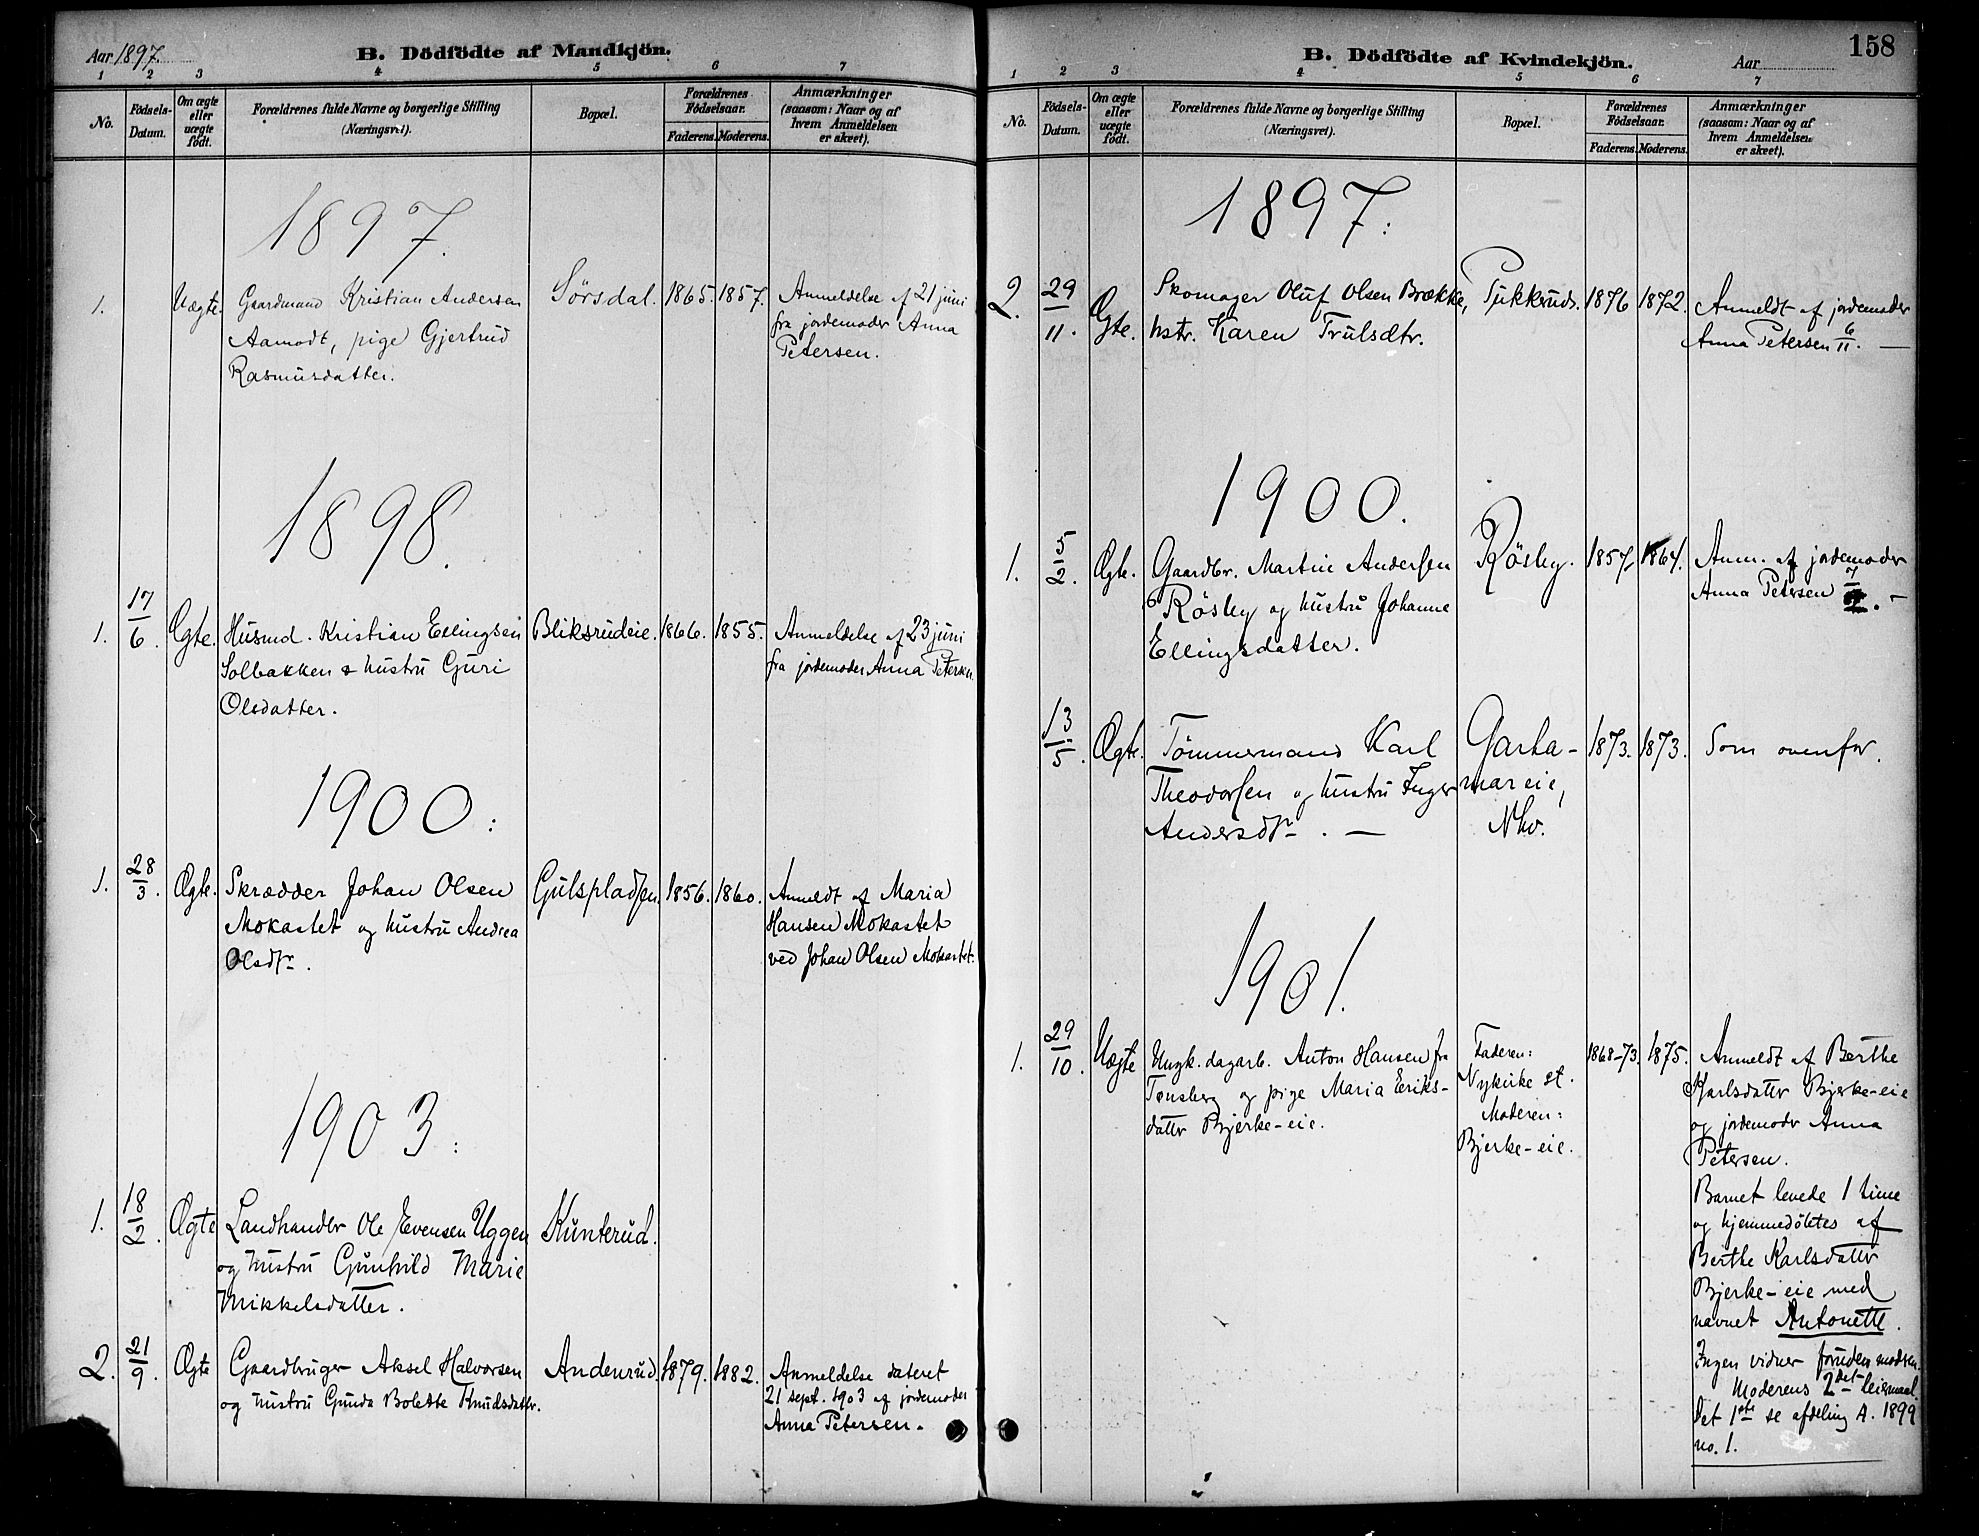 Aar 1897.
B. Dödfödte af Mandkjön.
1 2 3 4 5 6 7
No.
Födsels-
Datum.
Om ægte
eller
uægte
födt.
Forældrenes fulde Navne og borgerlige Stilling
(Næringsvei).
Bopæl.
Forældrenes
Födselsaar.
Faderens. Moderens.
Anmærkninger
(saasom: Naar og af
hvem Anmeldelsen
er skeet).
1897.
1. Uægte. Gaardmand Kristian Andersen Sörsdal. 1865. 1857. Anmeldelse af 21 juni
Aamodt, pige Gjertrud fra jordemoder Anna
Rasmusdatter. Petersen.
1898.
1. 17/6. Ægte. Husmd. Kristian Ellingsen Bliksrudeie. 1866. 1855. Anmeldelse af 23 juni
Solbakken & hustru Guri fra jordemoder Anna Petersen.
Olsdatter.
1900:
1. 28/3. Ægte. Skrædder Johan Olsen Gulspladsen 1856. 1860. Anmeldt af Maria
Mokastet og hustru Andrea Hansen Mokastet
Olsdtr. ved Johan Olsen Mokastet.
1903:
1. 18/2. Ægte Landhandler Ole Evensen Uggen Kunterud.
og hustru Gunhild Marie
Mikkelsdatter.
2. 21/9. Ægte Gaardbruger Aksel Halvorsen Andenrud. 1879. 1882. Anmeldelse dateret
og hustru Gunda Bolette Knudsdatter. 21 sept. 1903 af jordemoder
Anna Petersen.
158
B. Dödfödte af Kvindekjön.
Aar
1 2 3 4 5 6 7
No.
Födsels-
Datum.
Om ægte
eller
uægte
födt.
Forældrenes fulde Navne og borgerlige Stilling
(Næringsvei).
Bopæl.
Forældrenes
Födselsaar.
Faderens. Moderens.
Anmærkninger
(saasom: Naar og af
hvem Anmeldelsen
er skeet).
1897:
2. 29/11. Ægte. Skomager Oluf Olsen Brække, Pukkerud. 1876 1872. Anmeldt af jordemoder
hstr. Karen Trulsdtr. Anna Petersen 6/11. —
1900.
1. 5/2. Ægte. Gaardbr. Martin Andersen Rösby. 1857. 1864. Anm. af jordemoder
Rösby og hustru Johanne Anna Petersen
Ellingsdatter.
13/5. Ægte. Tömmermand Karl Garha- 1873. 1873. Som ovenfor.
Theodorsen og hustru Inger mareie,
Andersdtr. — Nkv.
1901.
1. 29/10. Uægte Ungk. dagarb. Anton Hansen fra Faderen: 1868-73. 1875. Anmeldt af Berthe
Tønsberg og pige Maria Eriks- Nykirke st. Karlsdatter Bjerke-eie
datter Bjerke-eie. Moderen: og jordemoder Anna
Bjerke-eie. Petersen.
Barnet levede 1 time
og hjemmedöbtes af
Berthe Karlsdatter
Bjerke-eie med
navnet Antonette.
Ingen vidner foruden moderen.
Moderens 2det leiermaal.
Det 1ste se afdeling A. 1899
no. 1.